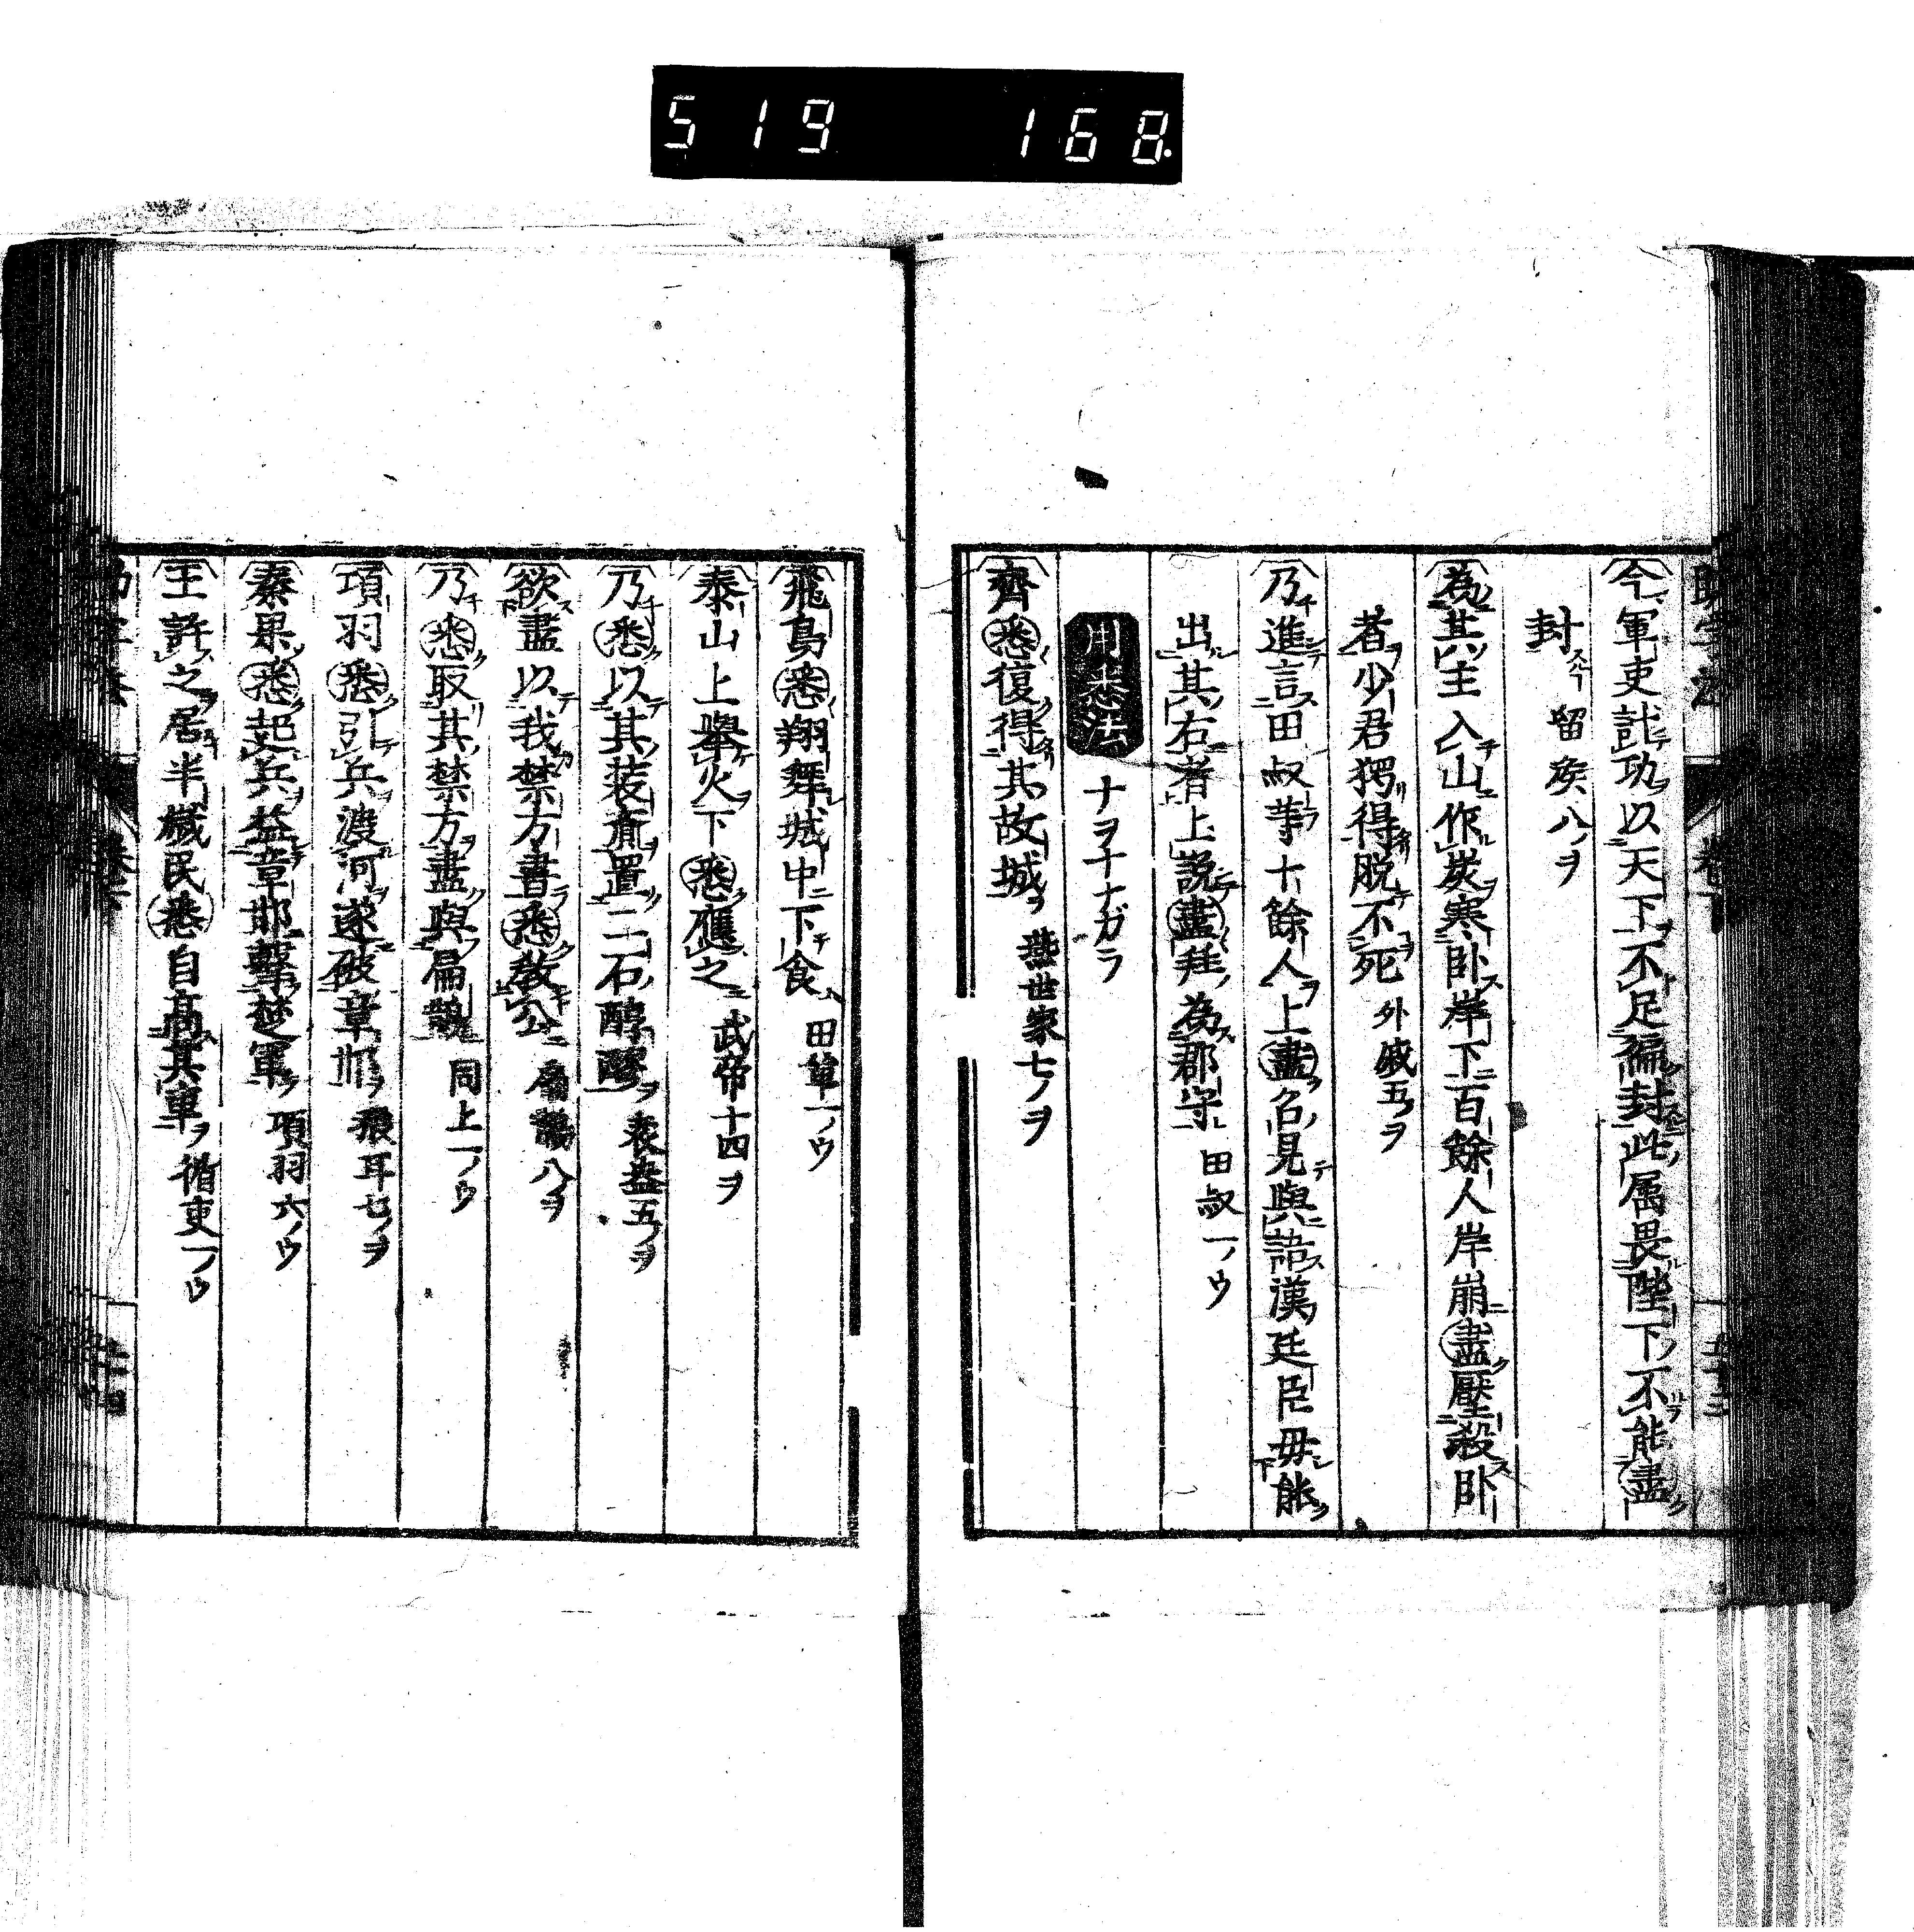 519 168
今軍吏計功以天下不足徧封此属畏陛下不能盡
封 留矦八ノヲ
為其主入山作炭寒臥岸下百餘人岸崩盡壓殺臥
者少君獨得脱不死 外戚五ノヲ
乃進言田叔等十餘人上盡召見與語漢廷臣毋能
出其右者上説盡拜為郡守 田叔一ノウ
用悉法 ナヲ十ナガラ
齊悉復得其故城 燕世家七ノヲ
飛鳥悉翔舞城中下食 田單一ノウ
泰山上擧火下悉應之 武帝十四ヲ
乃悉以其装齎置二石醇醪 袁盎五ノヲ
欲盡以我禁方書悉敎公 扁鵲八ヲ
乃悉取其禁方盡與扁鵲 同上一ノウ
項羽悉引兵渡河遂破章邯 張耳七ノヲ
秦果悉起兵益章邯擊楚軍 項羽六ノウ
王許之居半歳民悉自高其車 循吏一ノウ